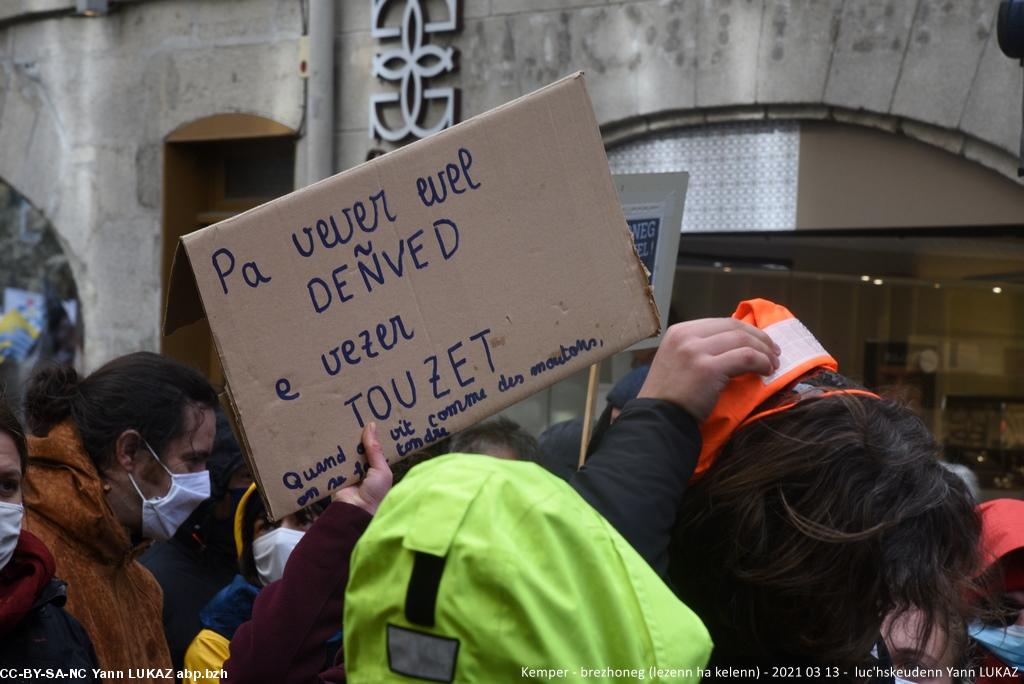 Pa vever evel
DEÑVED
e vezer
TOUZET
Quand on vit comme des moutons,
on se fait tondre
NEG
EL!
CC-BY-SA-NC Yann LUKAZ abp.bzh
Kemper - brezhoneg (lezenn ha kelenn) - 2021 03 13 - luc'hskeudenn Yann LUKAZ